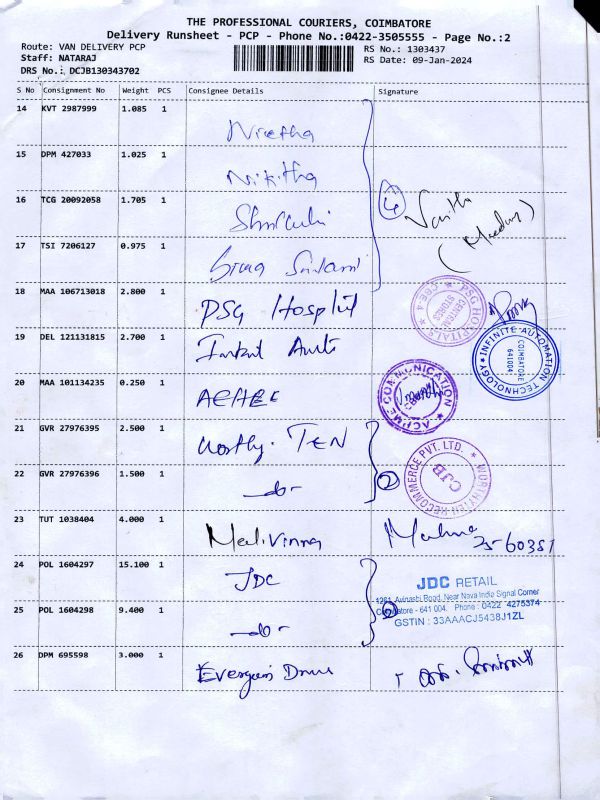 THE PROFESSIONAL COURIERS, COIMBATORE
Delivery Runsheet - PCP - Phone No.:0422-3505555 - Page No.:2
Route: VAN DELIVERY PCP RS No.: 1303437
Staff: NATARAJ RS Date: 09-Jan-2024
DRS No.: DCJB130343702
S No Consignment No Weight PCS Consignee Details Signature
14 KVT 2987999 1.085 1
15 DPM 427033 1.025 1 Nikitha
16 TCG 20092058 1.705 1 4
17 TSI 7206127 0.975 1
18 MAA 106713018 2.800 1 PSG Hospital
PSG HOSPITALS CENTRAL STORES
19 DEL 121131815 2.700 1
INFINITE AUTOMATION TECHNOLOGY COIMBATORE 641004
20 MAA 101134235 0.250 1
ACHME COMMUNICATION
21 GVR 27976395 2.500 1 Worthy. TEN
22 GVR 27976396 1.500 1 -do- 2
WORTHYTEN RECOMMERCE PVT. LTD. CJB
23 TUT 1038404 4.000 1
25-60381
24 POL 1604297 15.100 1 JDC
JDC RETAIL
1261, Avinashi Road, Near Nava India Signal Corner
Coimbatore - 641 004. Phone : 0422 4275374
GSTIN : 33AAACJ5438J1ZL
25 POL 1604298 9.400 1 -do- 2
26 DPM 695598 3.000 1